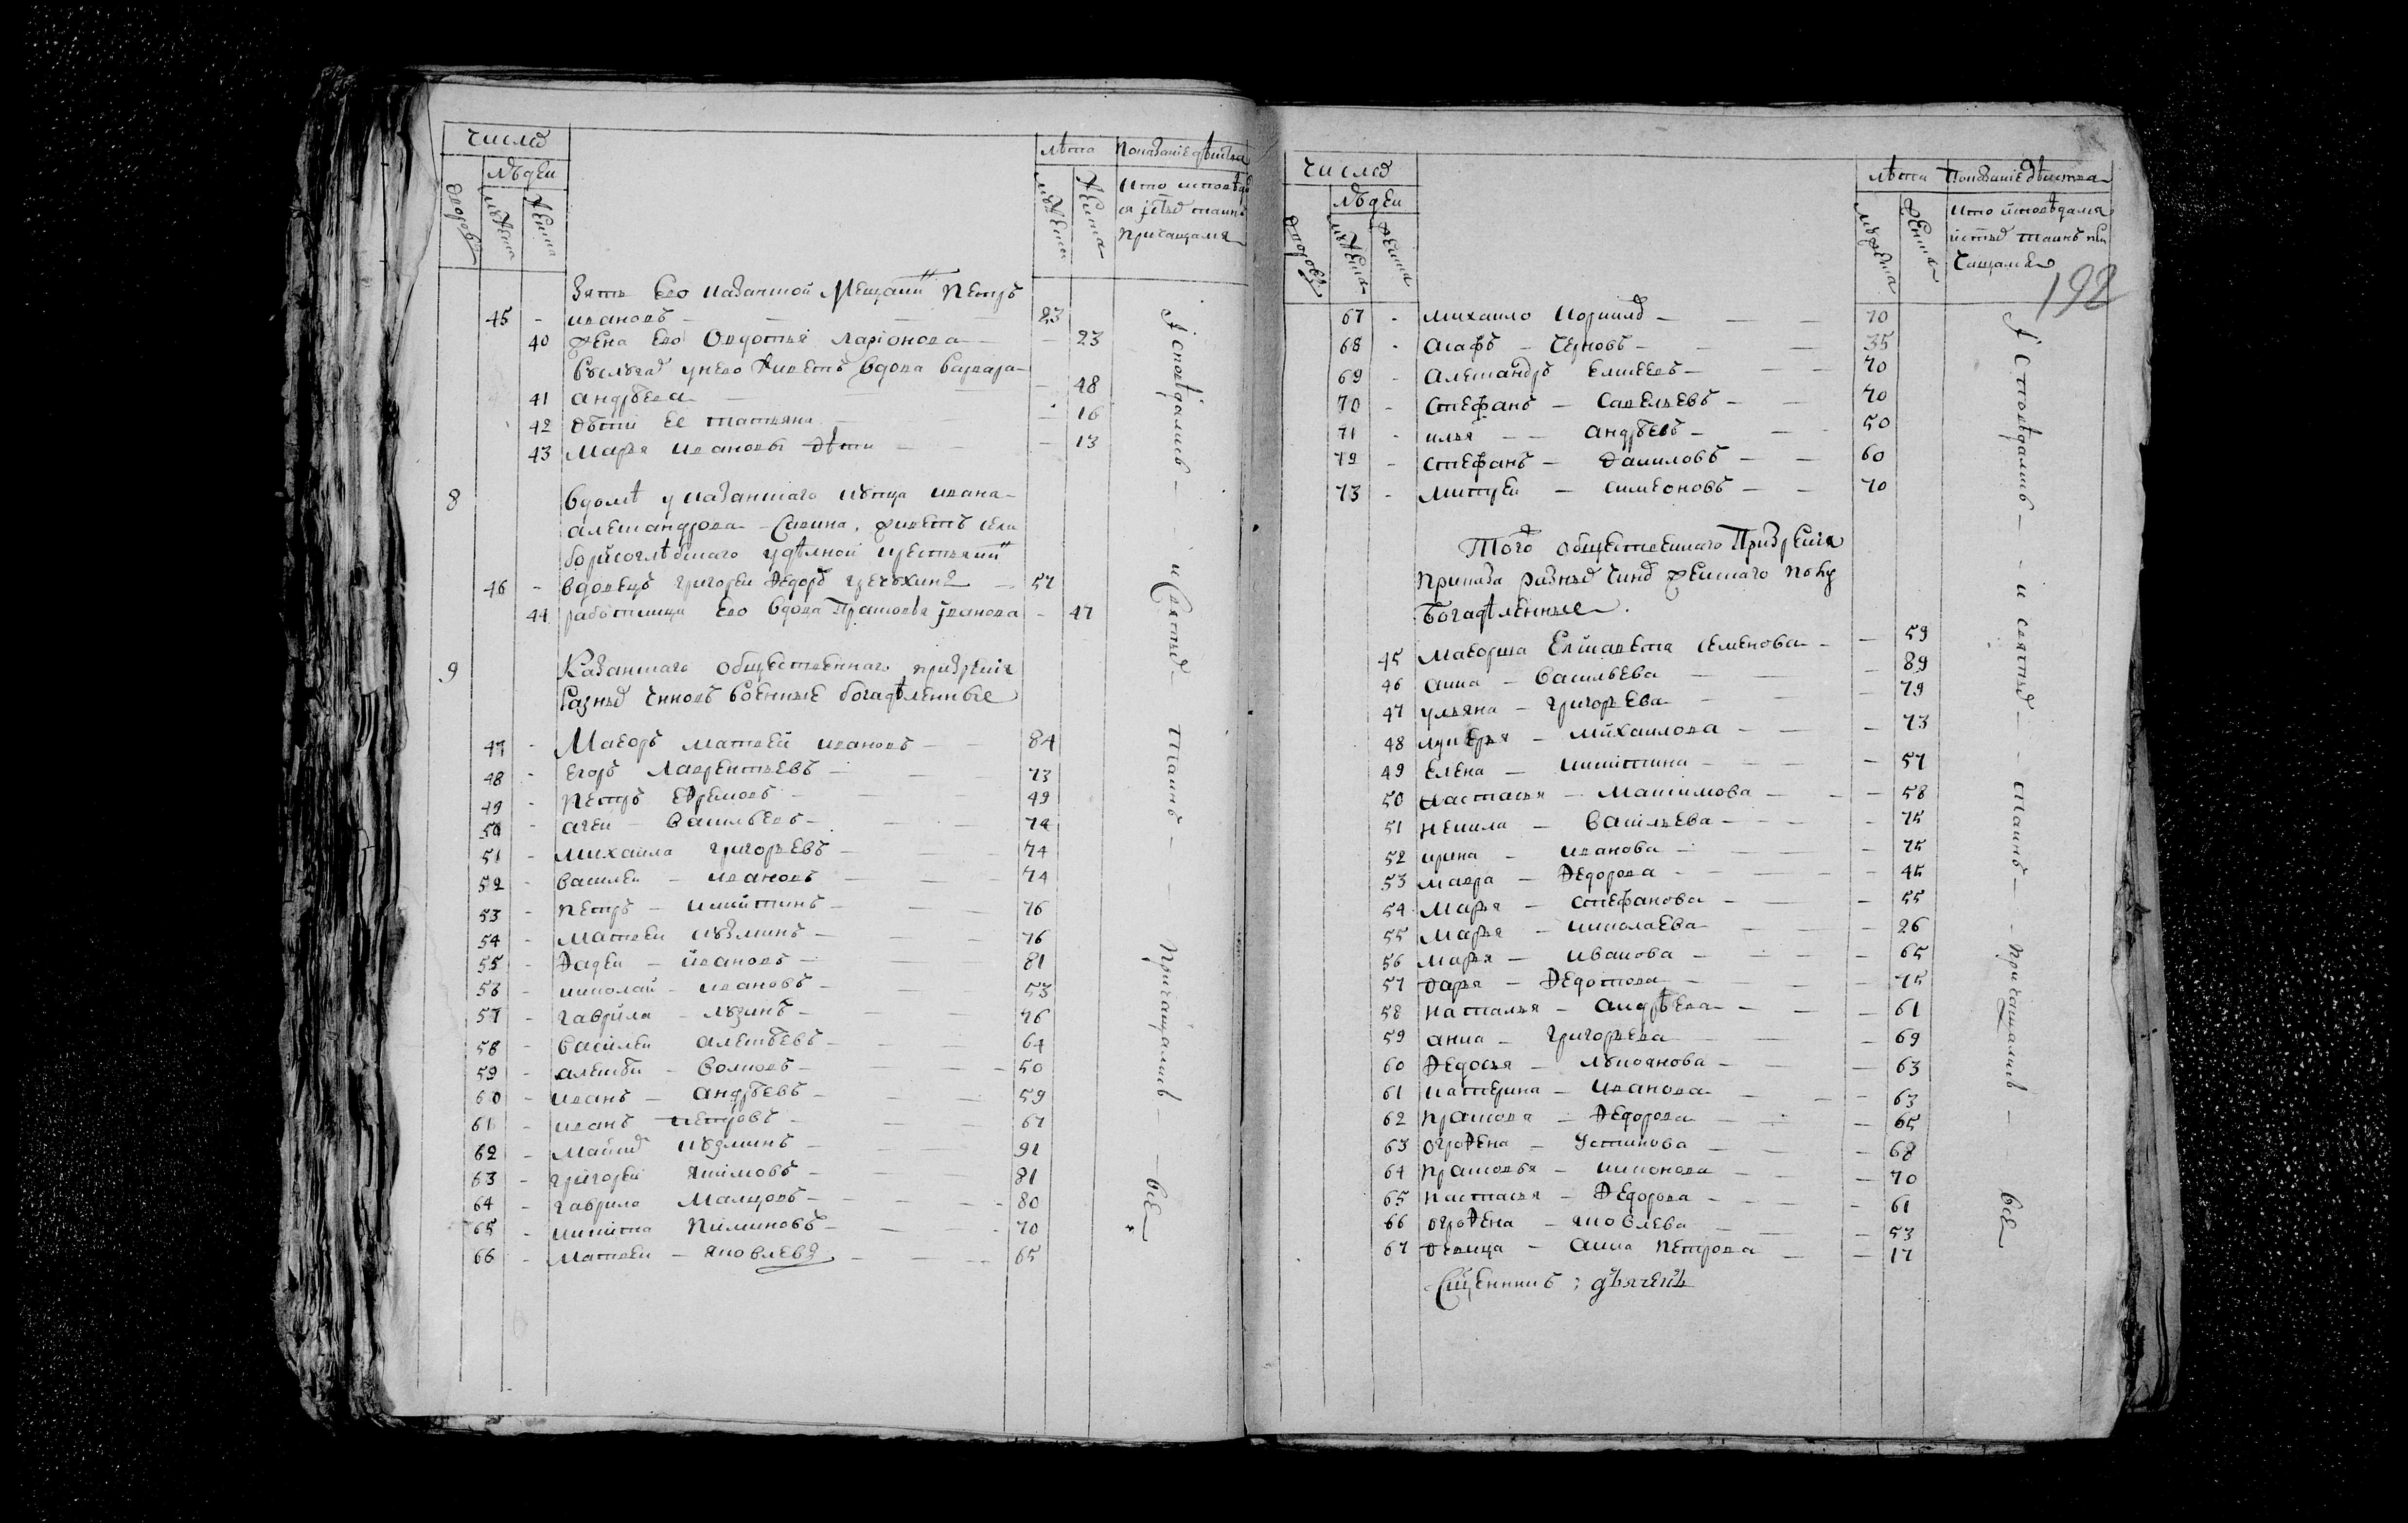 число
людей
дворовъ
мужеска
женска
лѣта
мужеска
женска
Показание дѣйства
кто исповѣд
и святыхъ таинъ
причащался
Зять Его казанской Мещанинъ Петръ
45 - ивановъ - 23
40 жена Его Овдотья Ларионова - 23
въ услугахъ у него живетъ вдова варвара
41 андрѣева - 48
42 дѣти Ее татьяна - 16
43 Марья ивановы дѣти - 13
8 в домѣ у казанскаго купца ивана
александрова Савина, живетъ села
борисоглѣбскаго удѣлной крестьянинъ
46 - вдовецъ григорей Федоръ гречхинъ - 57
44 работница Его вдова Прасковья Іванова - 47
9 Казанскаго общественнаго призрения
разныхъ чиновъ военные богадѣленные
47 - Маеоръ матвей ивановъ - 84
48 - егоръ Лаврентьевъ - 73
49 - петръ ефремовъ - 49
50 - агеи васильевъ - 74
51 - михайла григорьевъ - 74
52 - василеи - ивановъ - 74
53 - петръ - никитинъ - 76
54 - матвеи кузминъ - 76
55 - Фадеи - ивановъ - 81
56 - николаи - ивановъ - 53
57 - гаврила - кузинъ - 46
58 - василеи алексѣевъ - 64
59 - алексѣи - волковъ - 50
60 - иванъ - андрѣевъ - 59
61 - иванъ петровъ - 67
62 - макимъ кузминъ - 91
63 - григореи якимовъ - 81
64 - гаврило Малцовъ - 80
65 - никита Пиминовъ - 70
66 - матвеи - яковлевъ - 65
Исповѣдались - и Святыхъ - Таинъ - причащались - всѣ
число
людей
дворовъ
мужеска
женска
лѣта
мужеска
женска
Показание дѣиства
кто исповѣдался
и святыхъ таинъ при
чащался
192
67 - михаило корнилъ - 70
68 - агафъ - черновъ - 35
69 - александръ елисеевъ - 70
70 - стефанъ - савельевъ - 70
71 - илья - андрѣевъ - 50
72 - стефанъ - даниловъ - 60
73 - митреи - симеоновъ - 70
Того общественнаго Призрения
приказа разныхъ чиновъ женскаго полу
Богадѣленные.
45 Маеорша Елисавета семенова - 59
46 анна - васильева - 89
47 ульяна - григорьева - 79
48 лукерья - михаилова - 73
49 елена - никитина - 57
50 настасья - максимова - 58
51 ненила - васильева - 75
52 ирина - иванова - 75
53 мавра - Федорова - 45
54 марья - стефанова - 55
55 марья - николаева - 26
56 марья - иванова - 65
57 дарья - Федотова - 75
58 наталья - андрѣева - 61
59 анна - григорьева - 69
60 Федосья - лукоянова - 63
61 катерина - иванова - 63
62 прасковья - Федорова - 65
63 огрофена - устинова - 68
64 прасковья - никонова - 70
65 настасья - Федорова - 61
66 огрофена - яковлева - 53
67 девица - анна петрова - 17
Сщенникъ: дьяченъ
Исповѣдались - и святыхъ - Таинъ - причащались - всѣ